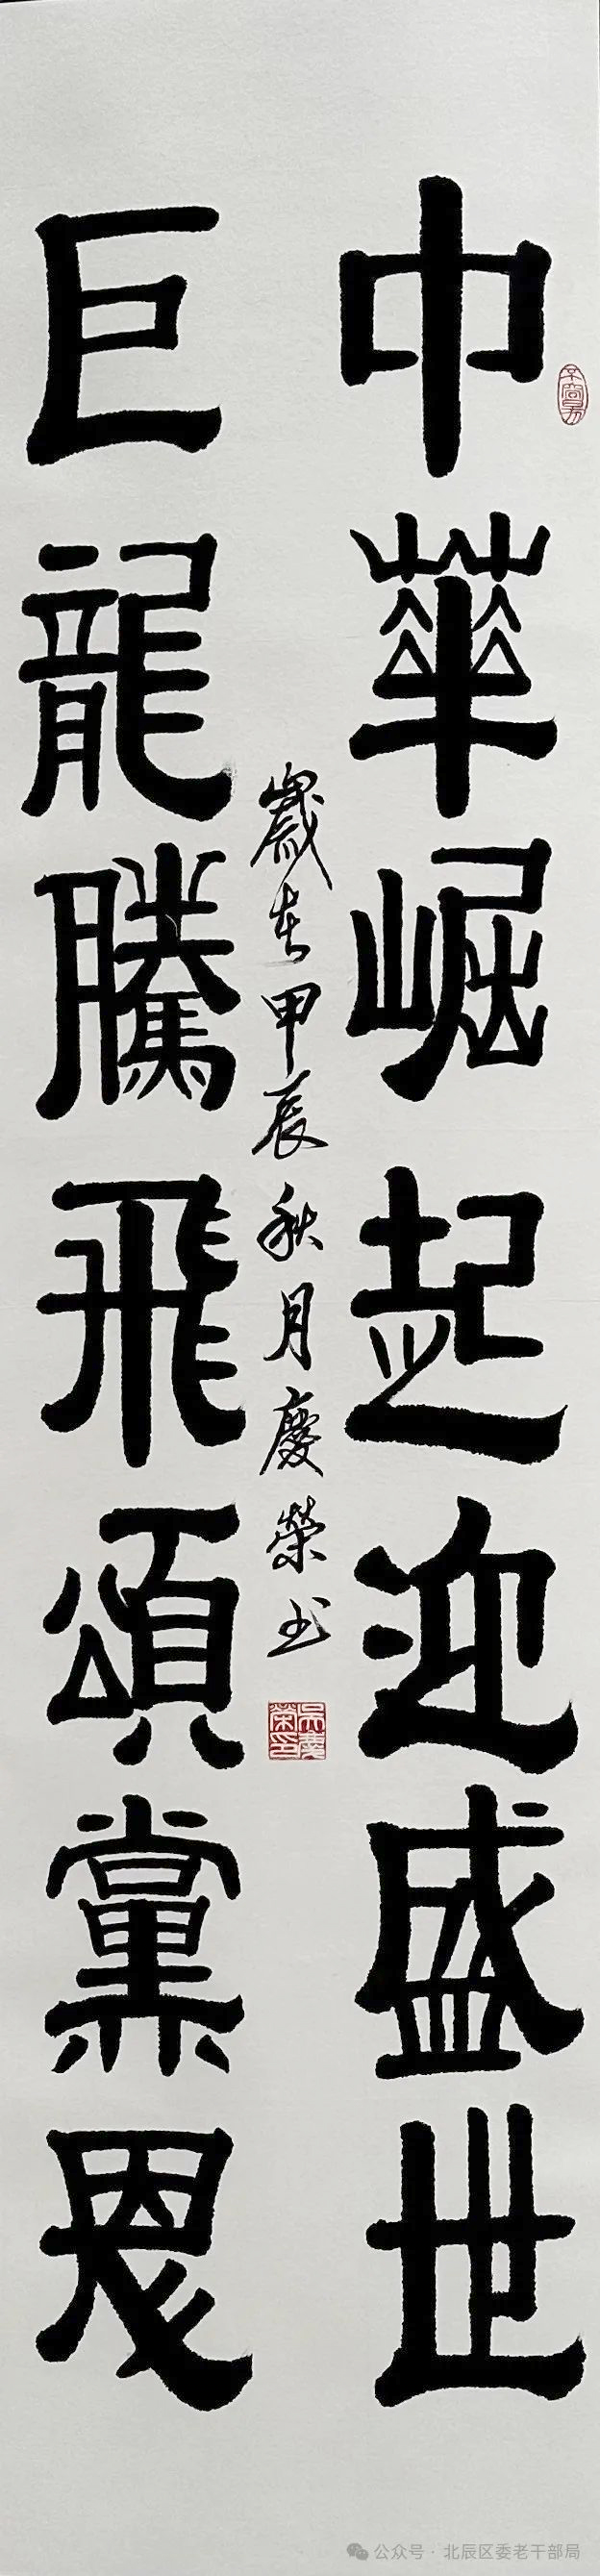 中華崛起迎盛世
巨龍騰飛頌黨恩
歲在甲辰秋月慶榮书
吴慶榮印
公众号 · 北辰区委老干部局